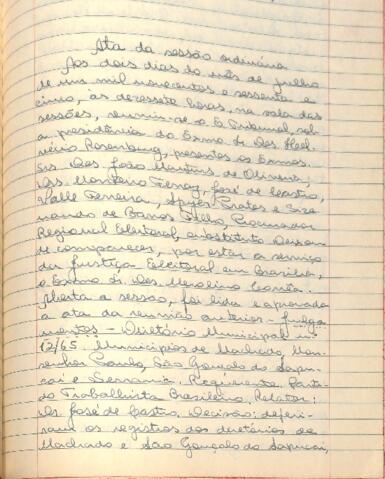 Ata da sessão ordinária
Aos dois dias do mês de julho
de um mil novecentos e sessenta e
cinco, às dezessete horas, na sala das
sessões, reuniu-se o E. Tribunal, sob
a presidência do Exmo. Sr. Des. Hel-
vécio Rosenburg, presentes os Exmos.
Srs. Des. João Martins de Oliveira,
Drs. Monteiro Ferraz, José de Castro,
Valle Ferreira, Prates e
de Barros Filho, Procurador
Regional Eleitoral, substituto. Deixou
de comparecer, por estar a serviço
da Justiça Eleitoral em Brasília,
o Exmo. Sr. Des. Merolino Corrêa.
Aberta a sessão, foi lida e aprovada
a ata da reunião anterior - Julga-
mentos - Diretório Municipal nº
12/65. Municípios de Machado, Mon-
senhor Paulo, São Gonçalo do Sapu-
caí e Serrania. Requerente Parti-
do Trabalhista Brasileiro. Relator:
Dr. José de Castro. Decisão: deferi-
ram os registros dos diretórios de
Machado e São Gonçalo do Sapucaí,